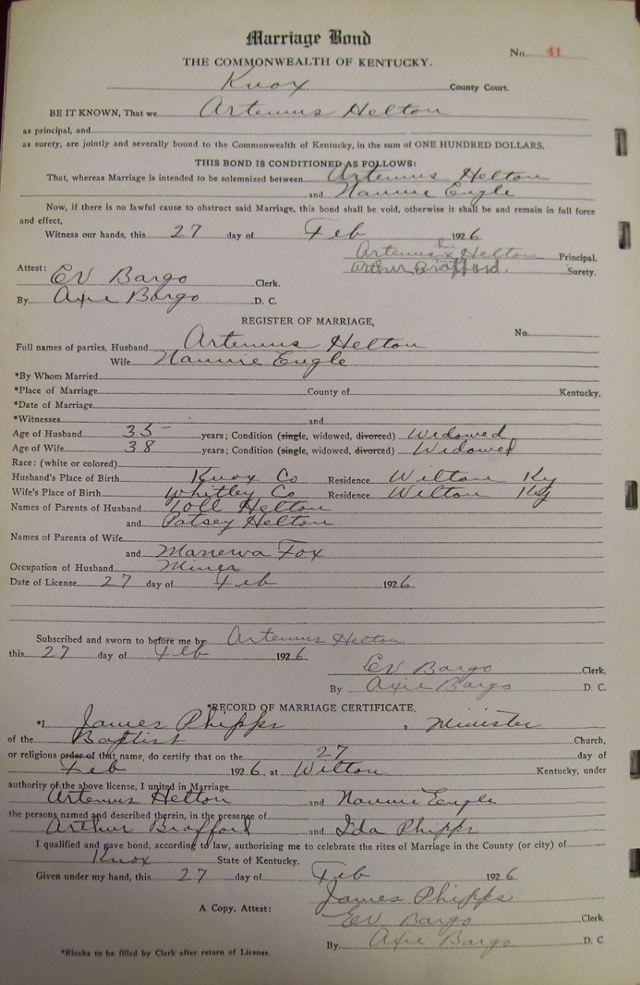 Marriage Bond
No. 41
THE COMMONWEALTH OF KENTUCKY.
Knox County Court.
BE IT KNOWN, That we Artemus Helton
as principal, and
as surety, are jointly and severally bound to the Commonwealth of Kentucky, in the sum of ONE HUNDRED DOLLARS.
THIS BOND IS CONDITIONED AS FOLLOWS:
That, whereas Marriage is intended to be solemnised between Artemus Helton
and Nannie Engle
Now, if there is no lawful cause to obstruct said Marriage, this bond shall be void, otherwise it shall be and remain in full force
and effect,
Witness our hands, this 27 day of Feb 1926
Artemus his x Helton Principal,
Attest: Arthur Brafford. Surety.
EV Bargo Clerk.
By Axie Bargo D. C.
REGISTER OF MARRIAGE,
No.
Full names of parties, Husband Artemus Helton
Wife Nannie Engle
*By Whom Married
*Place of Marriage County of Kentucky,
*Date of Marriage
*Witnesses and
Age of Husband 35 years; Condition (single, widowed, divorced) Widowed
Age of Wife 38 years; Condition (single, widowed, divorced) Widowed
Race: (white or colored)
Husband's Place of Birth Knox Co Residence Wilton Ky
Wife's Place of Birth Whitley Co Residence Wilton Ky
Names of Parents of Husband Helton
and Patsey Helton
Names of Parents of Wife
and Fox
Occupation of Husband Miner
Date of License 27 day of Feb 1926
Subscribed and sworn to before me by Artemus Helton
this 27 day of Feb 1926
EV Bargo Clerk,
By Axie Bargo D. C.
*RECORD OF MARRIAGE CERTIFICATE,
*I, James Phipps, Minister
of the Baptist Church,
or religious order of that name, do certify that on the 27 day of
Feb 1926, at Wilton Kentucky, under
authority of the above license, I united in Marriage
Artemus Helton and Nannie Engle
the persons named and described therein, in the presence of
Arthur Brafford and Ida Phipps
I qualified and gave bond, according to law, authorizing me to celebrate the rites of Marriage in the County (or city) of
Knox State of Kentucky.
Given under my hand, this 27 day of Feb 1926
James Phipps
A Copy, Attest: EV Bargo Clerk
By Axie Bargo D. C
*Blanks to be filled by Clerk after return of License.